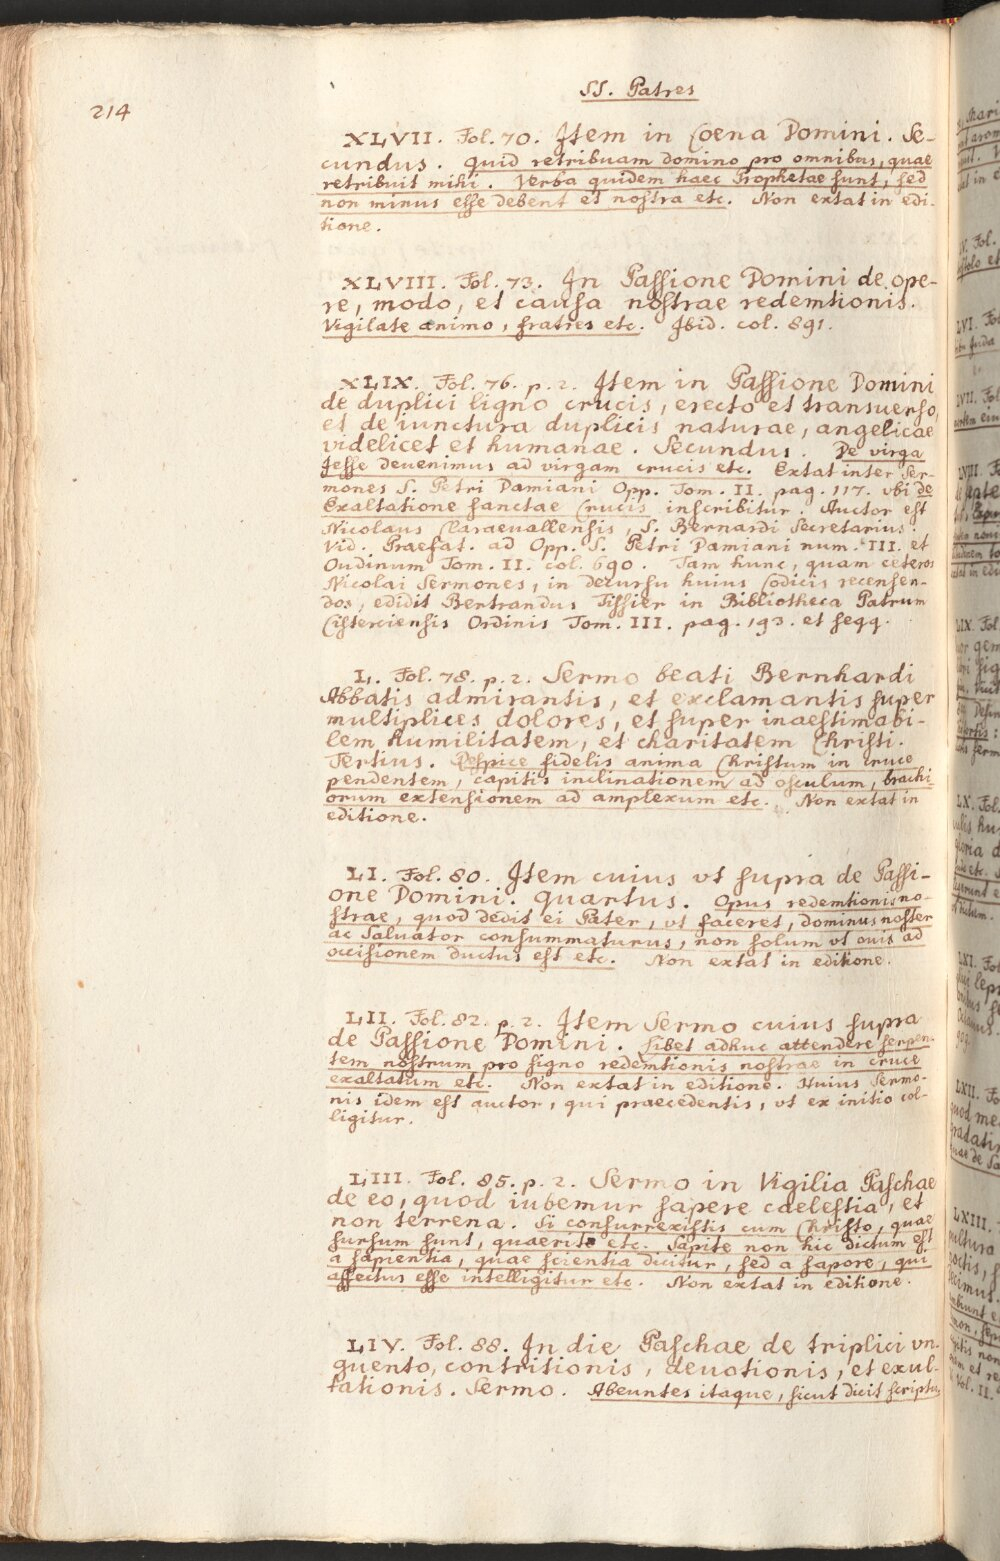 SS. Patres
214
XLVII. Fol. 70. Item in Coena Domini. Se-
cundus. Quid retribuam domino pro omnibus, quae
retribuit mihi. Verba quidem haec Prophetae sunt, sed
non minus esse debent et nostra etc. Non extat in edi-
tione.
XLVIII. Fol. 73. In Passione Domini de ope-
re, modo, et causa nostrae redemtionis.
Vigilate animo, fratres etc. Ibid. col. 891.
XLIX. Fol. 76. p. 2. Item in Passione Domini
de duplici ligno crucis, erecto et transuerso,
et de iunctura duplicis naturae, angelicae
videlicet et humanae. Secundus. De virga
Jesse deuenimus ad virgam crucis etc. Extat inter Ser-
mones S. Petri Damiani Opp. Tom. II. pag. 117. vbi de
Exaltatione sanctae Crucis inscribitur. Auctor est
Nicolaus Claraeuallensis, S. Bernardi Secretarius.
Vid. Praefat. ad Opp. S. Petri Damiani num. III. et
Oudinum Tom. II. col. 690. Tam hunc, quam ceteros
Nicolai Sermones, in decursu huius Codicis recensen-
dos, edidit Bertrandus Tissier in Bibliotheca Patrum
Cisterciensis Ordinis Tom. III. pag. 193. et seqq.
L. Fol. 78. p. 2. Sermo beati Bernhardi
Abbatis admirantis, et exclamantis super
multiplices dolores, et super inaestimabi-
lem humilitatem, et charitatem Christi.
Tertius. Respice fidelis anima Christum in cruce
pendentem, capitis inclinationem ad osculum, brachi-
orum extensionem ad amplexum etc. Non extat in
editione.
LI. Fol. 80. Item cuius vt supra de Passi-
one Domini. Quartus. Opus redemtionis no-
strae, quod dedit ei Pater, vt faceret, dominus noster
ac Saluator consummaturus, non solum vt ouis ad
occisionem ductus est etc. Non extat in editione.
LII. Fol. 82. p. 2. Item Sermo cuius supra
de Passione Domini. Libet adhuc attendere serpen-
tem nostrum pro signo redemtionis nostrae in cruce
exaltatum etc. Non extat in editione. Huius Sermo-
nis idem est auctor, qui praecedentis, vt ex initio col-
ligitur.
LIII. Fol. 85. p. 2. Sermo in Vigilia Paschae
de eo, quod iubemur sapere caelestia, et
non terrena. Si consurrexistis cum Christo, quae
sursum sunt, quaerite etc. Sapite non hic dictum est
a sapientia, quae scientia dicitur, sed a sapore, qui
affectus esse intelligitur etc. Non extat in editione.
LIV. Fol. 88. In die Paschae de triplici vn-
guento, contritionis, deuotionis, et exul-
tationis. Sermo. Abeuntes itaque, sicut dicit scriptu